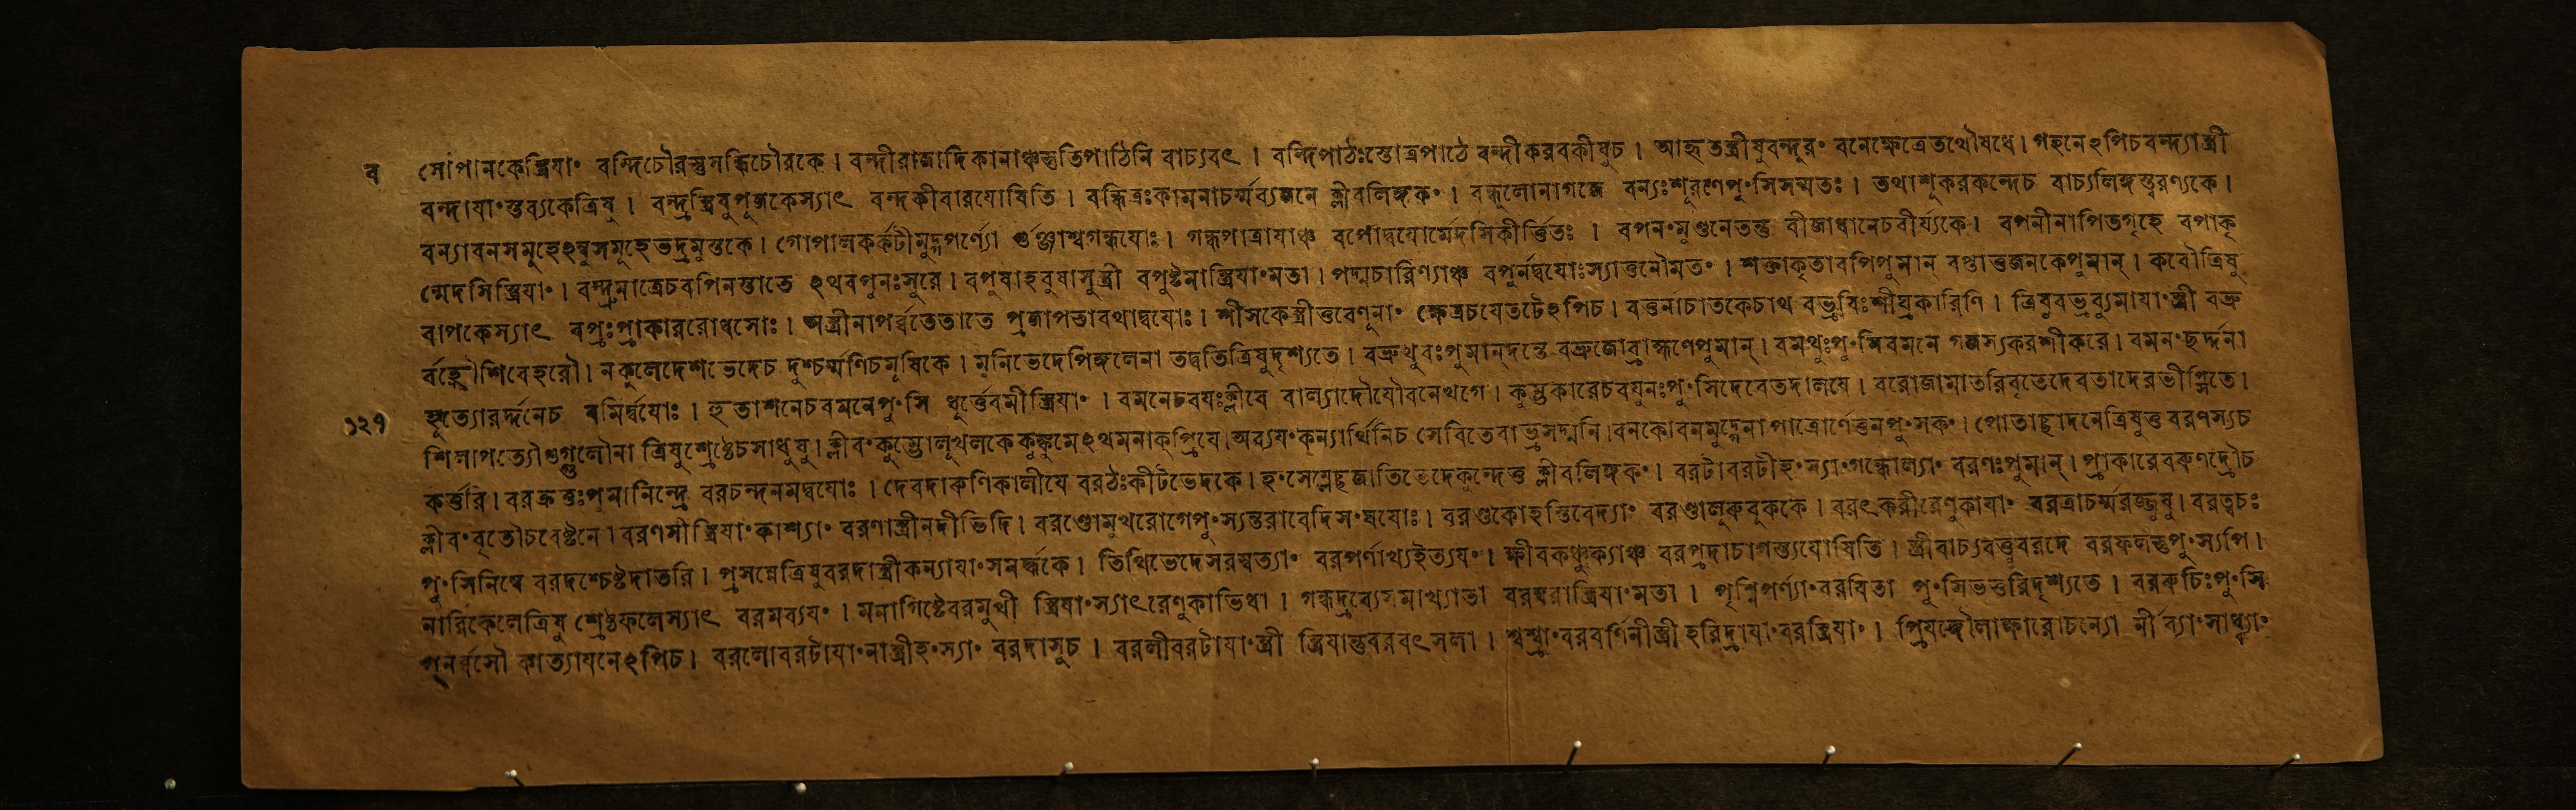 ব সোপানকেস্ত্রিযাং বন্দিচৌরস্তুসন্ধিচৌরকে। বন্দীরাজাদিকানাঞ্চস্তুতিপাঠিনি বাচ্যবৎ। বন্দিপাঠঃস্তোত্রপাঠে বন্দীকরবকীষুচ। আহৃতস্ত্রীষুবন্দূরং বনেক্ষেত্রেতথৌষধে। গহনেঽপিচবন্দ্যাস্ত্রী
বন্দাযাংস্তব্যকেত্রিষু। বন্দ্রস্ত্রিষুপূজকেস্যাৎ বন্দকীবারযোষিতি। বন্ধিত্রঃকামনাচর্ম্মব্যজনে ক্লীবলিঙ্গকং। বন্ধুলোনাগজে বন্যঃশূরণেপুংসিসম্মতঃ। তথাশূকরকন্দেচ বাচ্যলিঙ্গস্ত্বরণ্যকে।
বন্যাবনসমূহেঽম্বুসমূহেভদ্রমুস্তকে। গোপালকর্কটীমুদ্গপর্ণ্যো র্গুঞ্জাশ্বগন্ধযোঃ। গন্ধপাত্রাযাঞ্চ বপোদ্বযোর্ম্মেদসিকীর্ত্তিতঃ। বপনংমুণ্ডনেতন্তু বীজাধানেচবীর্য্যকে। বপনীনাপিতগৃহে বপাকৃ
ন্মেদসিস্ত্রিযাং। বন্দ্রমাত্রেচবপিনস্তাতে ঽথবপুনঃসুরে। বপুষাহবুষাসুস্ত্রী বপুষ্টমাস্ত্রিযাংমতা। পদ্মচারিণ্যাঞ্চ বপুর্নদ্বযোঃস্যাত্তনৌমতং। শস্তাকৃতাবপিপুমান্ বপ্তাত্তুজনকেপুমান্। কবৌত্রিষু
বাপকেস্যাৎ বপ্রঃপ্রাকাররোধসোঃ। অস্ত্রীনাপর্ব্বতেতাতে প্রজাপতাবথাদ্বযোঃ। শীসকেস্ত্রীত্তবেণূনাং ক্ষেত্রচযেতটেঽপিচ। বত্তর্নাচাতকেচাথ বভ্রবিঃশীঘ্রকারিণি। ত্রিষুবভ্রব্যুমাযাংস্ত্রী বভ্রু
র্বহ্নৌশিবেহরৌ। নকুলেদেশভেদেচ দুশ্চর্ম্মণিচমূষিকে। মুনিভেদেপিঙ্গলেনা তদ্বতিত্রিষুদৃশ্যতে। বভ্রুথুবঃপুমান্দন্তে বভ্রুজোব্রাহ্মণেপুমান্। বমথুঃপুংসিবমনে গজস্যকরশীকরে। বমনংছর্দ্দনা
১২৭ হুত্যোরর্দ্দনেচ বমির্দ্বযোঃ। হুতাশনেচবমনেপুংসি ধূর্ত্তেবমীস্ত্রিযাং। বমনেচবযঃক্লীবে বাল্যাদৌযৌবনেখগে। কুম্ভকারেচবযুনঃপুংসিদেবেতদালযে। বরোজামাতরিবৃতেদেবতাদেরভীপ্সিতে।
শিলাপত্যৌগুগ্গুলৌনা ত্রিষুশ্রেষ্ঠেচসাধুষু। ক্লীবংকুম্ভোলূখলকেকুঙ্কুমেঽথমনাক্প্রিযে। অব্যযংকন্যার্থিনিচ সেবিতেবাভ্রসদ্মনি। বনকোবনমুদ্গেনাপাত্রোর্ণেত্তনপুংসকং। পোতাচ্ছাদনেত্রিষুত্তবরণস্যচ
কর্ত্তরি। বরক্রতুঃপুমানিন্দ্রে বরচন্দনমদ্বযোঃ। দেবদারুণিকালীযে বরঠঃকীটভেদকে। হংসেম্লেচ্ছজাতিভেদেকুন্দেত্ত ক্লীবলিঙ্গকং। বরটাবরটীহংস্যাংগন্ধোল্যাং বরণঃপুমান্। প্রাকারেবরুণদ্রৌচ
ক্লীবংবৃতৌচবেষ্টনে। বরণসীস্ত্রিযাংকাশ্যাং বরণাস্ত্রীনদীভিদি। বরণ্ডোমুখরোগেপুংস্যন্তরাবেদিসংঘযোঃ। বরণ্ডকোহস্তিবেদ্যাং বরণ্ডালুরুবুককে। বরৎকরীরেণুকাযাং বরত্রাচর্ম্মরজ্জুষু। বরত্বচঃ
পুংসিনিম্বে বরদশ্চেষ্টদাতরি। প্রসন্নেত্রিষুবরদাস্ত্রীকন্যাযাংসমর্দ্ধকে। তিথিভেদেসরস্বত্যাং বরপর্ণাখ্যইত্যযং। ক্ষীবকঞ্চুক্যাঞ্চ বরপ্রদাচাগস্ত্যযোষিতি। স্ত্রীবাচ্যবত্তুবরদে বরফলত্তুপুংস্যপি।
নারিকেলেত্রিষু শ্রেষ্ঠফলেস্যাৎ বরমব্যযং। মনাগিষ্টেবরমুখী স্ত্রিযাংস্যাৎরেণুকাভিধা। গন্ধদ্রব্যেসমাখ্যাতা বরম্বরাত্রিযাংমতা। পৃশ্নিপর্ণ্যাংবরযিতা পুংসিভত্তরিদৃশ্যতে। বররুচিঃপুংসি
পুনর্ব্বসৌ কাত্যাযনেঽপিচ। বরলোবরটাযাংনাস্ত্রীহংস্যাং বরদাসুচ। বরলীবরটাযাংস্ত্রী স্ত্রিযান্তুবরবৎসলা। শ্বশ্র্বাংবরবর্ণিনীস্ত্রীহরিদ্রাযাংবরস্ত্রিযাং। প্রিযঙ্গৌলাক্ষারোচন্যো র্নীব্যাংসাধ্ব্যাং